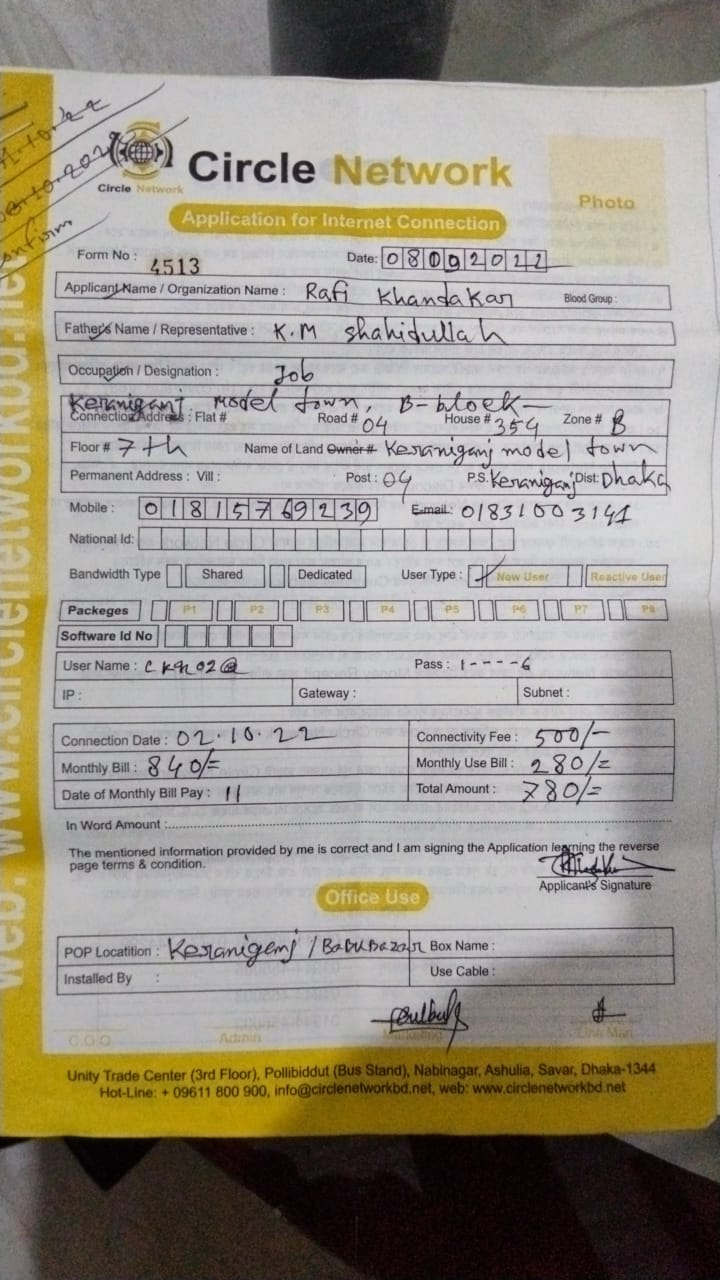 08.10.202
onfirm
Circle Network
Circle Network
Application for Internet Connection
Photo
Form No : 4513
Date: 08092022
Applicant Name / Organization Name : Rafi Khandakar Blood Group :
Father's Name / Representative : K.M Shahidullah
Occupation / Designation : Job
Keraniganj model town, B-block
Connection Address : Flat # Road # 04 House # 354 Zone # B
Floor # 7th Name of Land Owner # Keraniganj model town
Permanent Address : Vill : Post : 04 P.S. Keraniganj Dist: Dhaka
Mobile : 01815769239 E-mail: 01831003141
National Id:
Bandwidth Type Shared Dedicated User Type : New User Reactive User
Packeges P1 P2 P3 P4 P5 P6 P7 P8
Software Id No
User Name : Pass : 1----6
IP : Gateway : Subnet :
Connection Date : 02.10.22 Connectivity Fee : 500/-
Monthly Bill : 840/= Monthly Use Bill : 280/=
Date of Monthly Bill Pay : 11 Total Amount : 780/=
In Word Amount :
The mentioned information provided by me is correct and I am signing the Application learning the reverse
page terms & condition.
Applicant's Signature
Office Use
POP Locatition : Keraniganj / Babubazar Box Name :
Installed By : Use Cable :
C.O.O Admin Marketing Line Man
Unity Trade Center (3rd Floor), Pollibiddut (Bus Stand), Nabinagar, Ashulia, Savar, Dhaka-1344
Hot-Line: + 09611 800 900, info@circlenetworkbd.net, web: www.circlenetworkbd.net
web: www.circlenetworkbd.ne